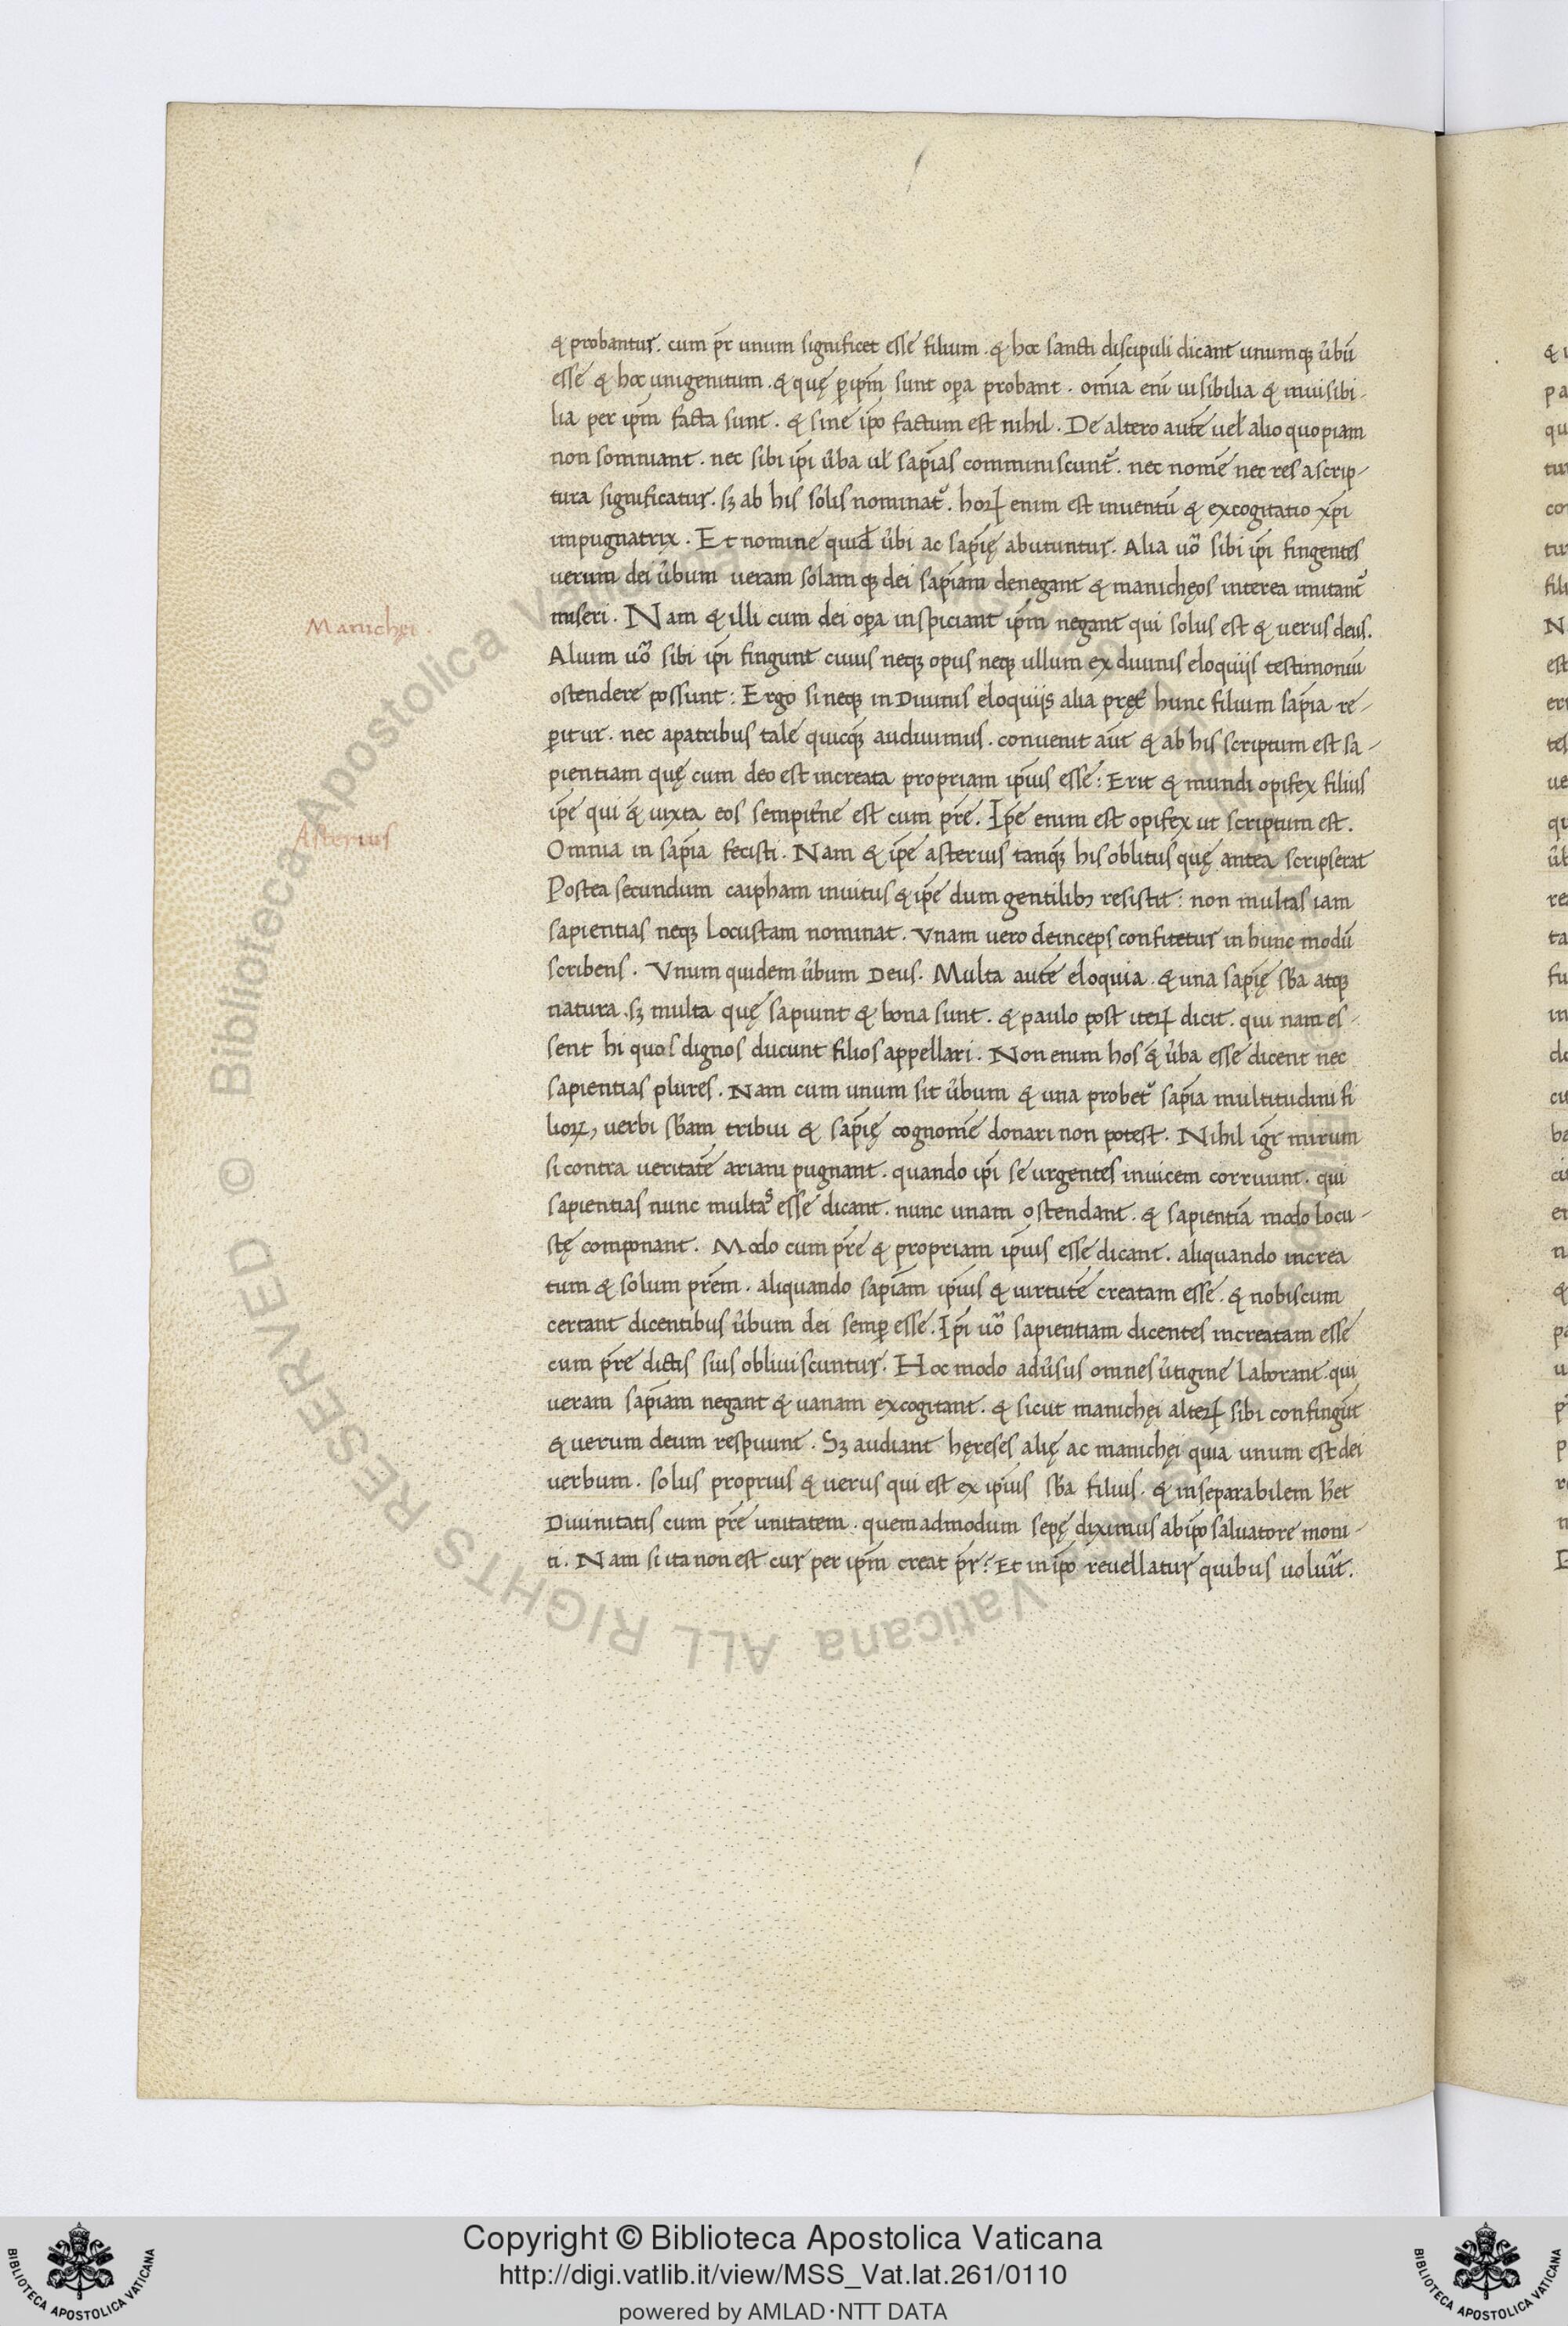 & probantur. cum pr̄ unum significet esse filium. & hoc sancti discipuli dicant unumqꝫ ủbū
esse & hoc unigenitum. & quę ꝑ ip̄m sunt oꝑa probant. om̄ia eni uisibilia & inuisibi-
lia per ip̄m facta sunt. & sine ip̄o factum est nihil. De altero autē uel alio quopiam
non somniant. nec sibi ip̄i ủba ul̄ sap̄ias comminiscunt᷑. nec nomē nec res a scrip-
tura significatur. sꝫ ab his solis nominat᷑. hoꝝ enim est inuentū & excogitatio xp̄i
impugnatrix. Et nomine quid̄ ủbi ac sap̄ię abutuntur. Alia uo᷑ sibi ip̄i fingentes
uerum dei ủbum ueram solamqꝫ dei sap̄iam denegant & manichęos interea imitant᷑
miseri. Nam & illi cum dei oꝑa inspiciant ip̄m negant qui solus est & uerus deus.
Manichei.
Alium uo᷑ sibi ip̄i fingunt cuius neqꝫ opus neqꝫ ullum ex diuinis eloquiis testimoniū
ostendere possunt: Ergo si neqꝫ in Diuinis eloquiis alia pręt᷑ hunc filium sap̄ia re-
ꝑitur. nec a patribus tale quicqꝫ audiuimus. conuenit aūt & ab his scriptum est sa-
pientiam quę cum deo est increata propriam ip̄ius esse: Erit & mundi opifex filius
ip̄e qui & iuxta eos sempit᷑ne est cum pr̄e. Ip̄e enim est opifex ut scriptum est.
Asterius
Omnia in sap̄ia fecisti. Nam & ip̄e asterius tanqꝫ his oblitus quę antea scripserat
Postea secundum caipham inuitus & ip̄e dum gentilibꝫ resistit: non multas iam
sapientias neqꝫ Locustam nominat. Vnam uero deinceps confitetur in hunc modū
scribens. Vnum quidem ủbum Deus. Multa autē eloquia. & una sapię sb̄a atqꝫ
natura. sꝫ multa quę sapiunt & bona sunt. & paulo post iteꝝ dicit. qui nam es-
sent hi quos dignos ducunt filios appellari. Non enim hos & ủba esse dicent nec
sapientias plures. Nam cum unum sit ủbum & una probet᷑ sap̄ia multitudini fi
lioꝝ, uerbi sb̄am tribui & sap̄ię cognomē donari non potest. Nihil igr̄ mirum
si contra ueritatē ariani pugnant. quando ip̄i se urgentes inuicem corruunt. qui
sapientias nunc multas esse dicant. nunc unam ostendant. & sapientiā modo locu-
stę componant. Modo cum pr̄e & propriam ip̄ius esse dicant. aliquando increa
tum & solum pr̄em. aliquando sap̄iam ip̄ius & uirtutē creatam esse. & nobiscum
certant dicentibus ủbum dei semꝑ esse. Ip̄i uo᷑ sapientiam dicentes increatam esse
cum pr̄e dictis suis obliuiscuntur. Hoc modo adủsus omnes ủtigine Laborant. qui
ueram sap̄iam negant & uanam excogitant. & sicut manichęi alteꝝ sibi confingūt
& uerum deum respuunt. Sꝫ audiant hęreses alię ac manichęi quia unum est dei
uerbum. solus proprius & uerus qui est ex ip̄ius sb̄a filius. & inseparabilem h̄et
Diuinitatis cum pr̄e unitatem. quemadmodum sepę diximus ab ip̄o saluatore moni-
ti. Nam si ita non est cur per ip̄m creat pr̄? Et in ip̄o reuellatur quibus uoluit᷑.
Copyright © Biblioteca Apostolica Vaticana
http://digi.vatlib.it/view/MSS_Vat.lat.261/0110
powered by AMLAD·NTT DATA
BIBLIOTECA APOSTOLICA VATICANA
BIBLIOTECA APOSTOLICA VATICANA